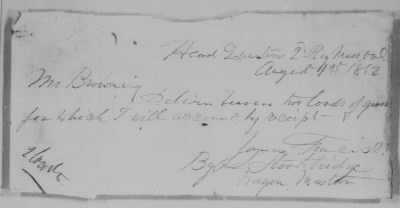 Head Quarters 2d Reg Mass Vol
August 4th 1862
Mr Browning
Deliver bearer two loads of grass
for which I will account by receipt
James Francis
By Stockbridge
Wagon Master